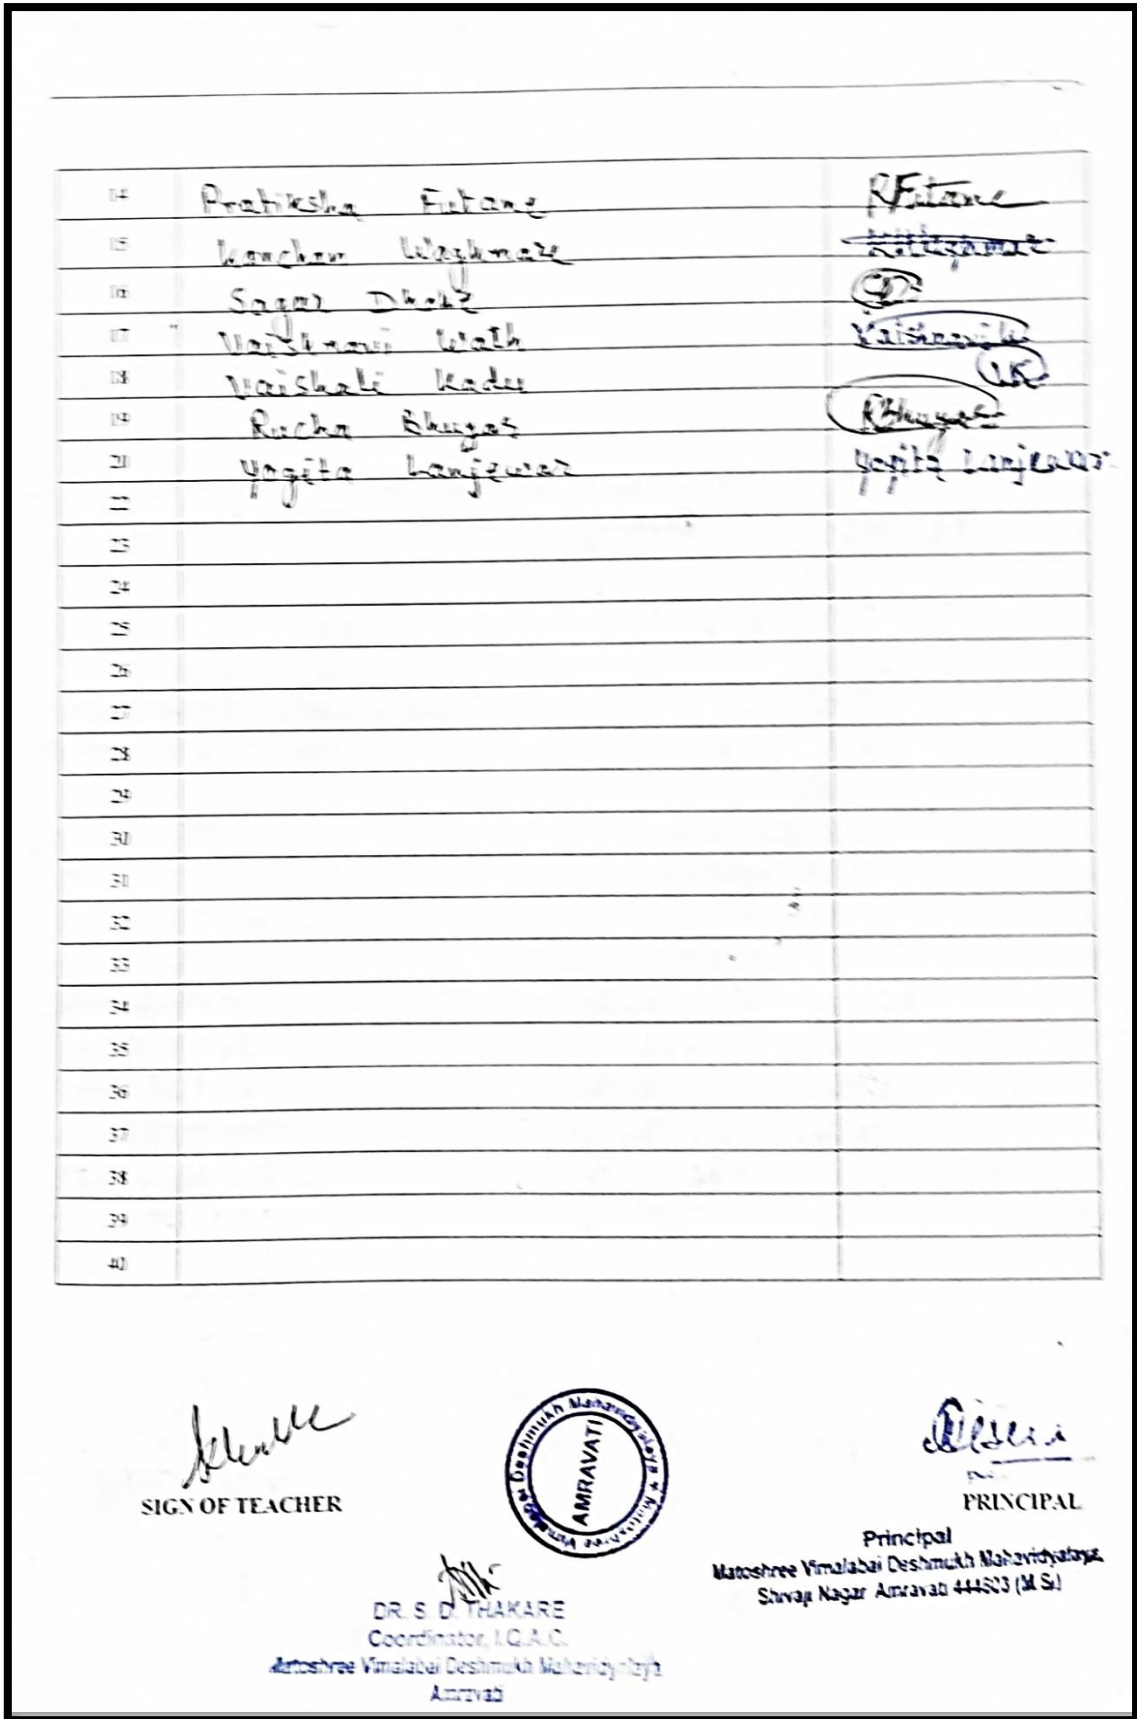 14 Pratiksha Futane RFutane
15 Kanchan Waghmare
16 Sagar Dhoke
17 Vaishnavi Wath
18 Vaishali Kadu VK
19 Rucha Bhugas RBhugas
21 Yogita Lanjewar Yogita Lanjewar
22
23
24
25
26
27
28
29
30
31
32
33
34
35
36
37
38
39
40
Matoshree Vimalabai Deshmukh Mahavidyalaya
AMRAVATI
SIGN OF TEACHER
PRINCIPAL
Principal
Matoshree Vimalabai Deshmukh Mahavidyalaya,
Shivaji Nagar Amravati 444603 (M.S.)
DR. S. D. THAKARE
Coordinator, I.Q.A.C.
Matoshree Vimalabai Deshmukh Mahavidyalaya
Amravati